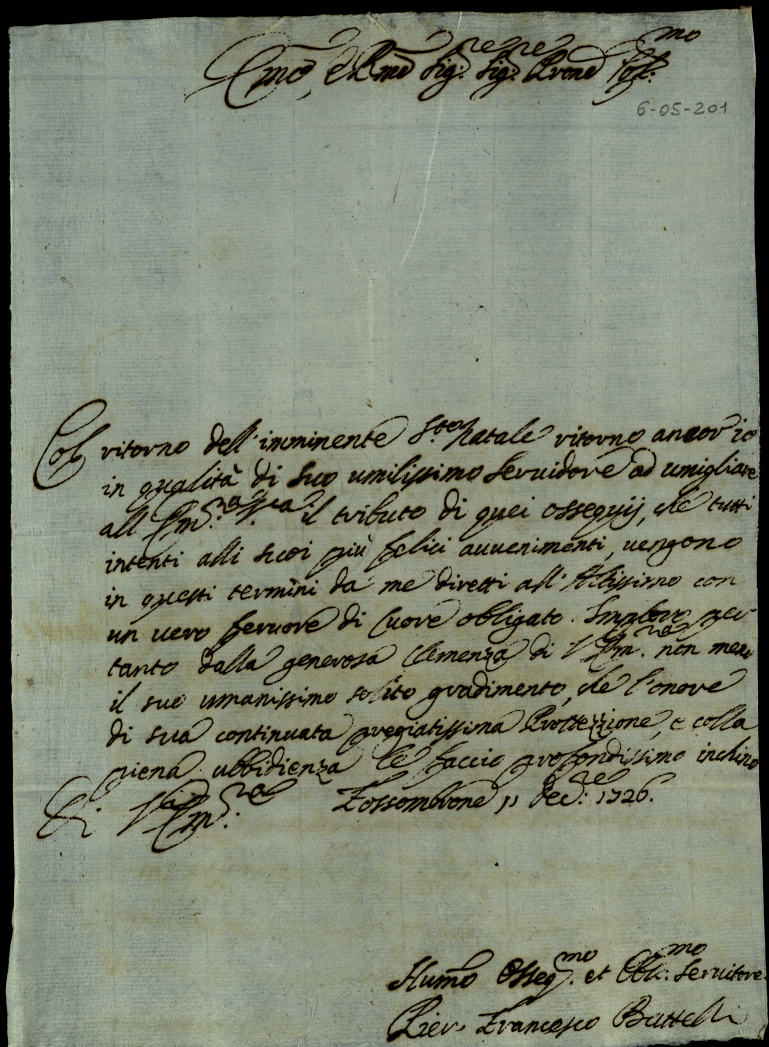 Emo, e Rmo Sig.re Sig.re Prone Col.mo
6-05-201
Col ritorno dell'imminente S.to Natale ritorno ancor io
in qualità di suo umilissimo servidore ad umigliare
all'Em.za V.ra il tributo di quei ossequij, che tutti
intenti alli suoi più felici avvenimenti, vengono
in questi termini da me diretti all'Altissimo con
un vero fervore di Cuore obligato. Imploro per
tanto dalla generosa Clemenza di V. Em.za non meno
il suo umanissimo solito gradimento, che l'onore
di sua continuata pregiatissima Protezzione, e colla
piena ubbidienza le faccio profondissimo inchino
Di V.ra Em.za Fossombrone 11 Dec.re 1726.
Humo Osseq.mo et Obl.mo Servitore
Pier Francesco Buttelli